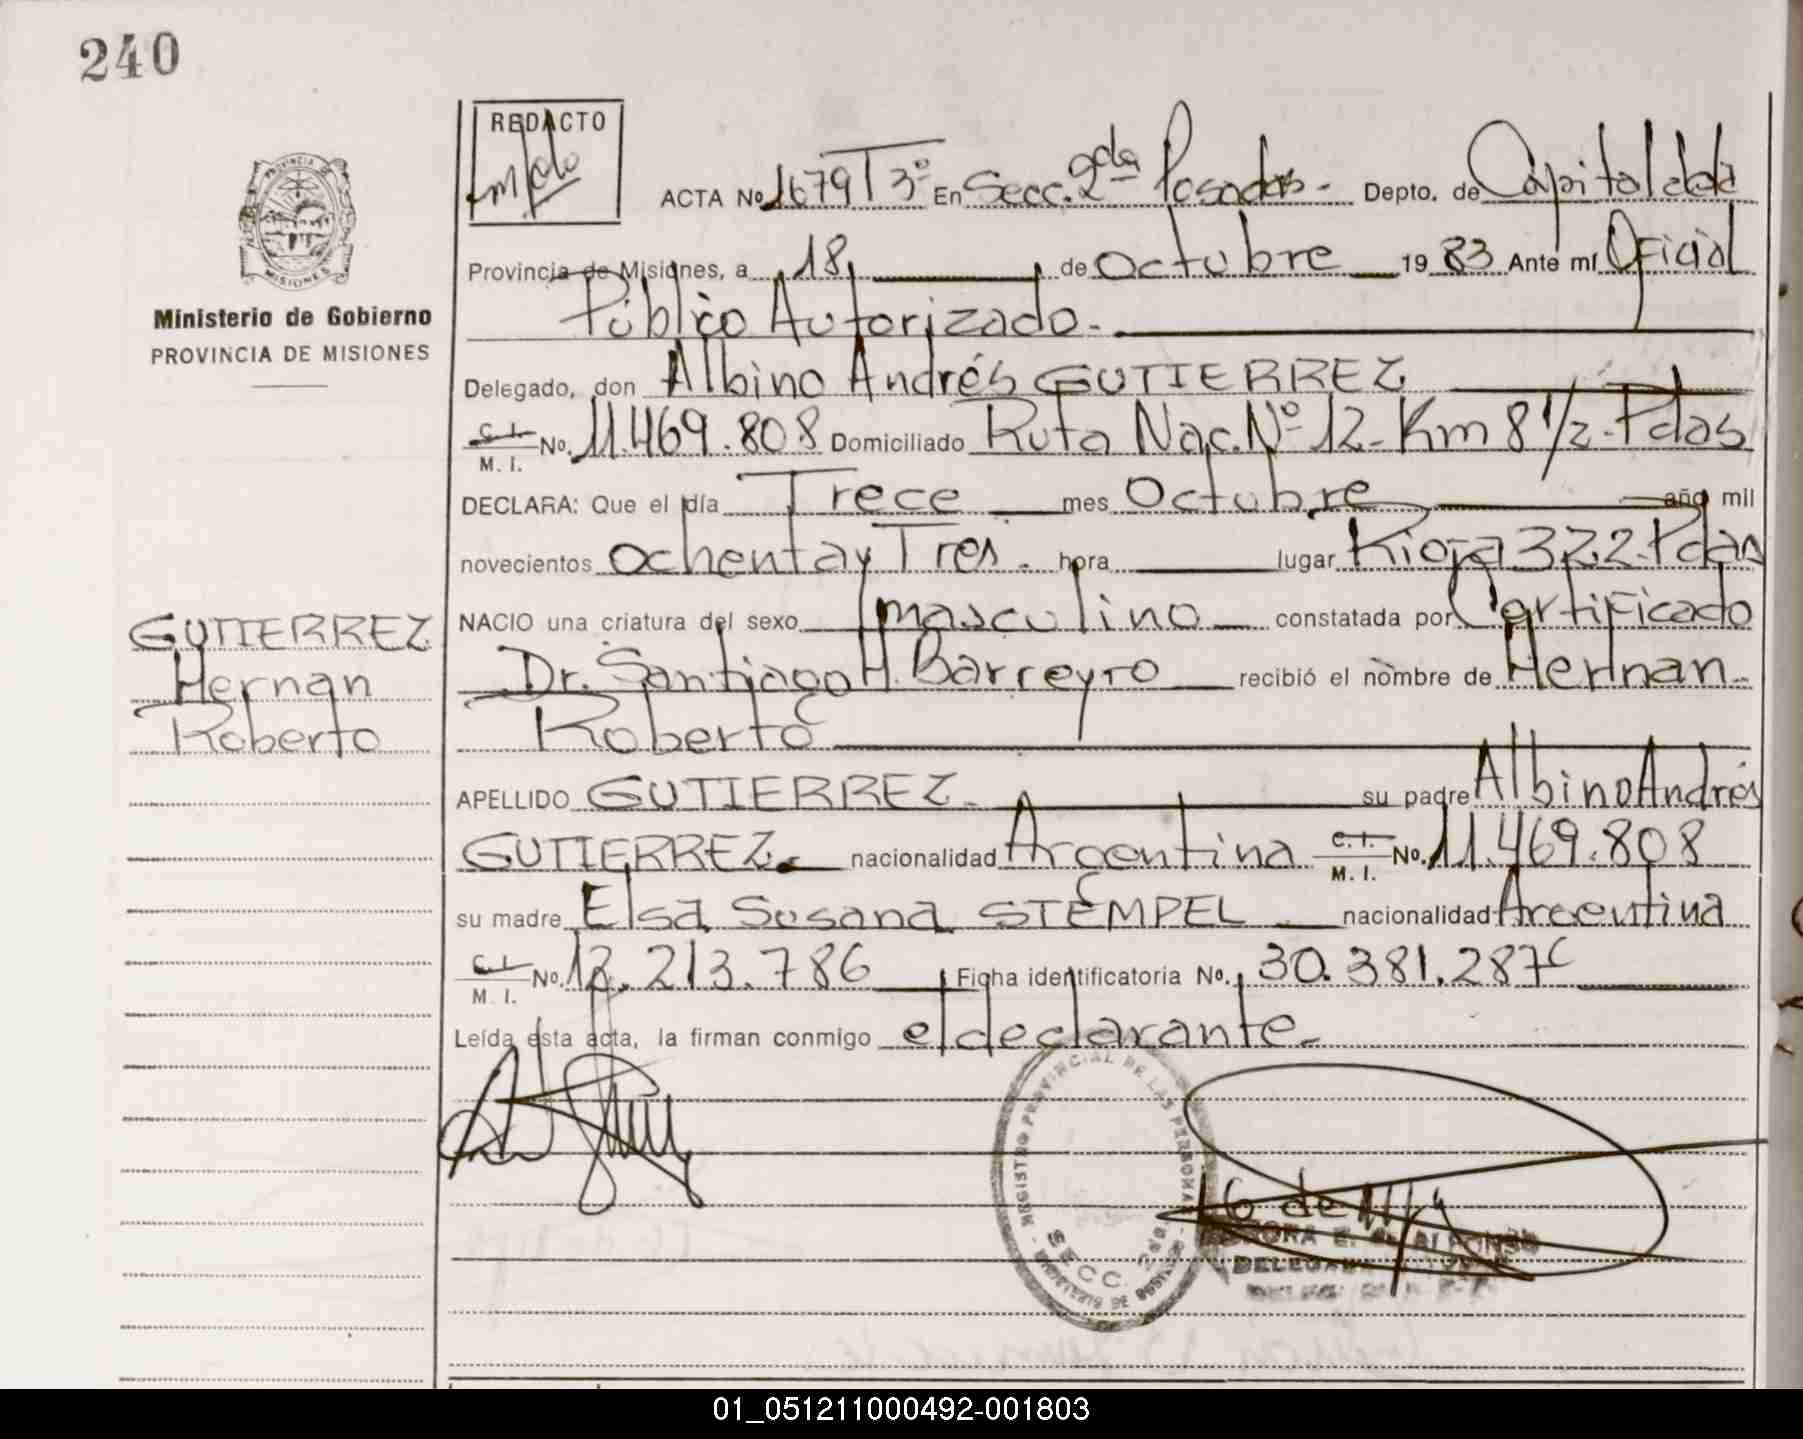 240
REDACTO
PROVINCIA DE
MISIONES
Ministerio de Gobierno
PROVINCIA DE MISIONES
ACTA No 1679 T 3º En Secc. 2da Posadas - Depto. de Capital de la
Provincia de Misiones, a 18 de Octubre 19 83 Ante mí Oficial
Público Autorizado.-
Delegado, don Albino Andrés GUTIERREZ
C. I. M. I. No. 11.469.808 Domiciliado Ruta Nac. Nº 12- Km 8 1/2- Pdas
DECLARA: Que el día Trece mes Octubre año mil
novecientos ochenta y Tres. hora lugar Rioja 322-Pdas
NACIO una criatura del sexo masculino constatada por Certificado
Dr. Santiago H. Barreyro recibió el nombre de Hernan
Roberto
GUTIERREZ
Hernan
Roberto
APELLIDO GUTIERREZ- su padre Albino Andrés
GUTIERREZ nacionalidad Argentina C. I. M. I. No. 11.469.808
su madre Elsa Susana STEMPEL nacionalidad Argentina
C. I. M. I. No. 12.213.786 Ficha identificatoria No. 30.381.287
Leída esta acta, la firman conmigo el declarante.-
REGISTRO PROVINCIAL DE LAS PERSONAS
SECC.
DELEGADA
01_051211000492-001803